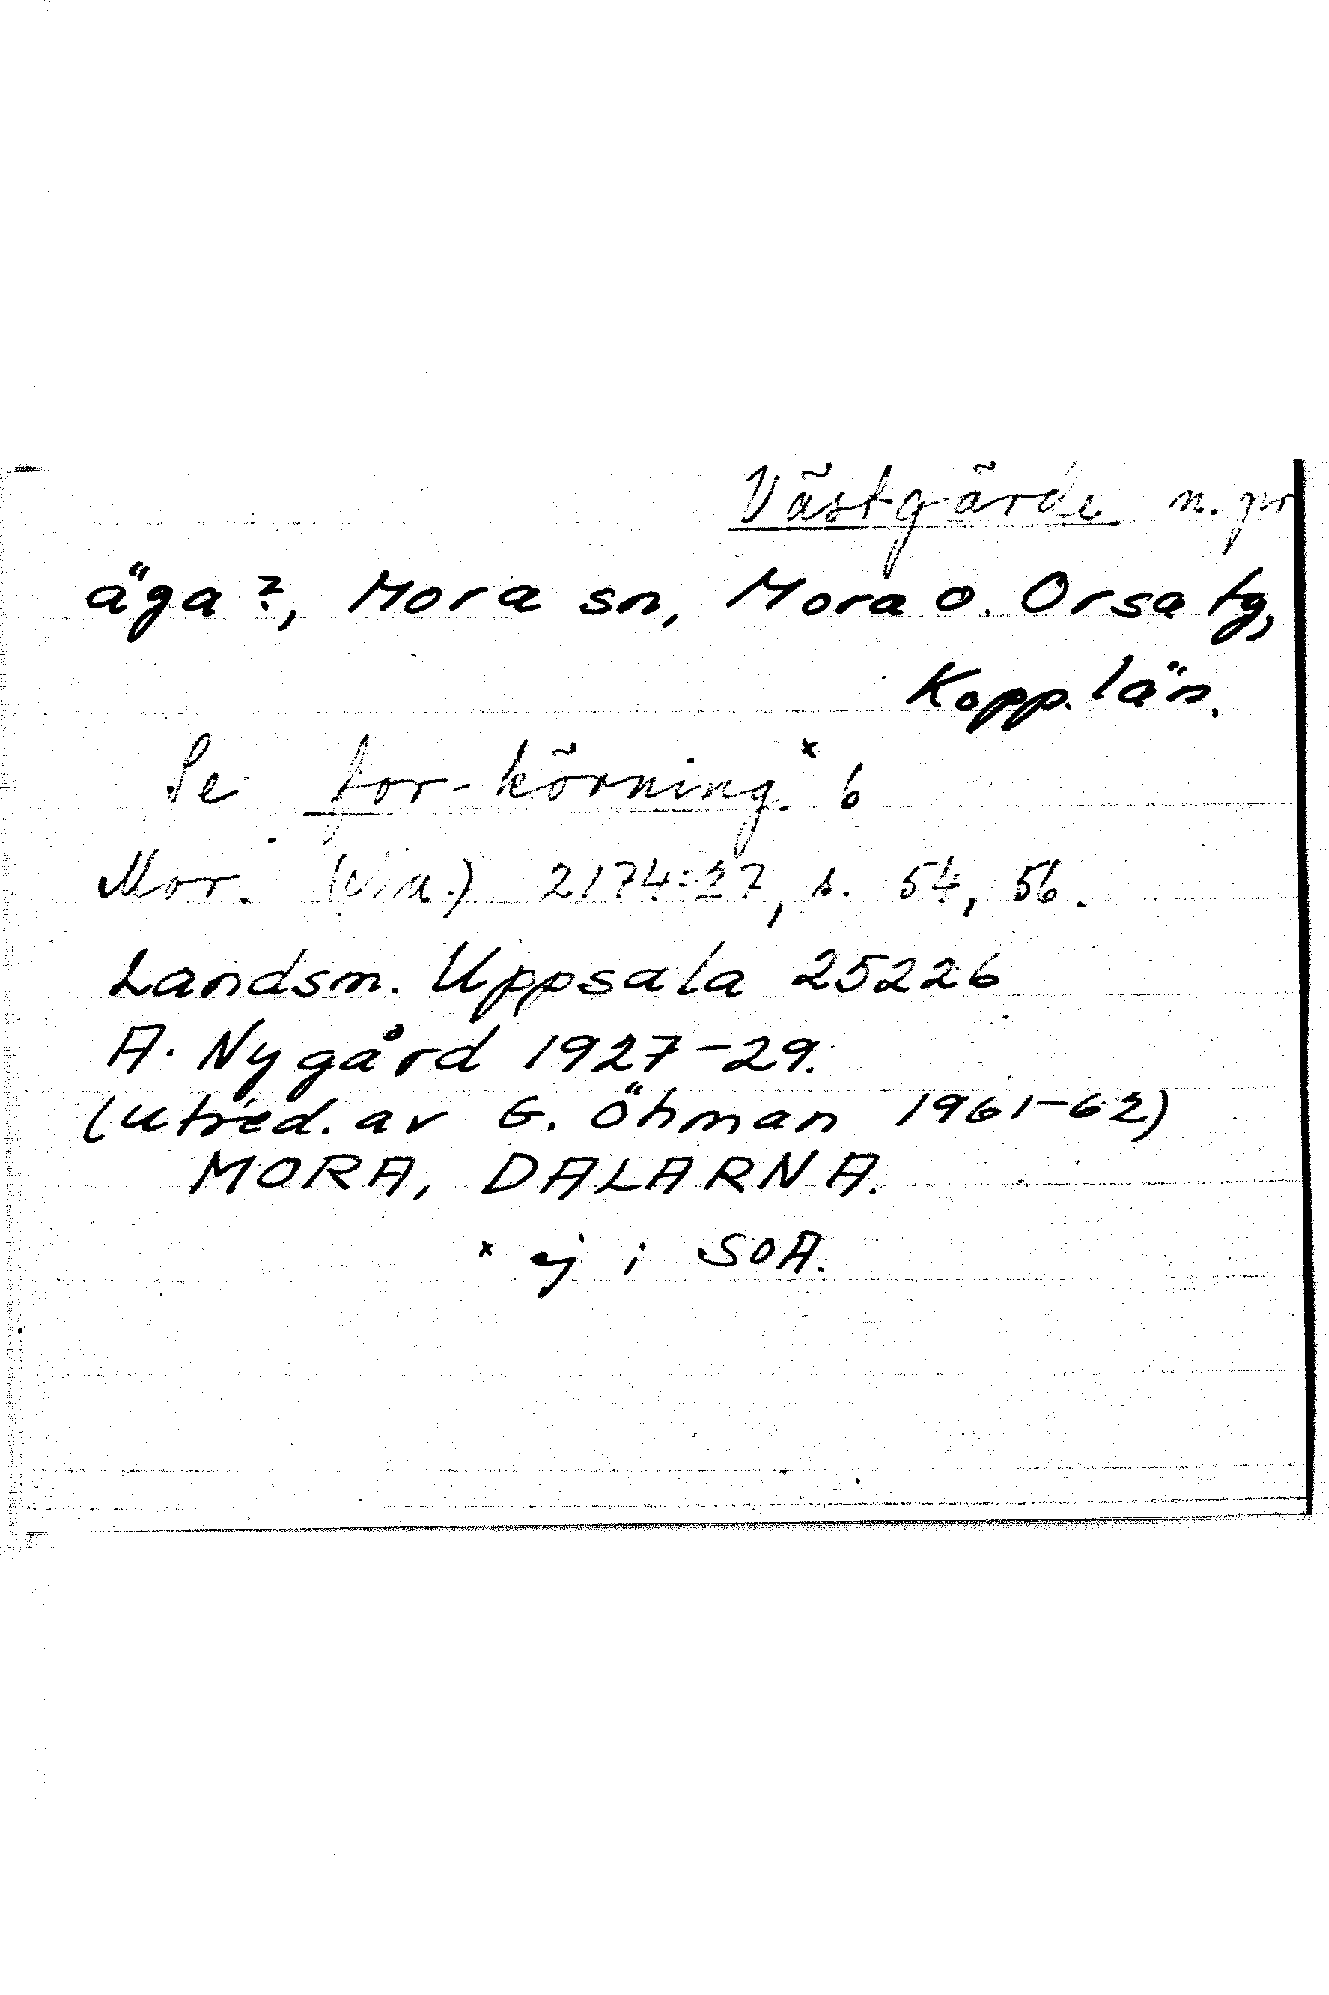 Västgärde n. pr
äga?, Mora sn, Mora o. Orsa tg,
Kopp. län.
Se for-körning.ˣ b
Mor. 2174:27, s. 54, 56.
Landsm. Uppsala 25226
A. Nygård 1927-29.
(utred. av G. Öhman 1961-62)
MORA, DALARNA.
ˣ ej i SOA.